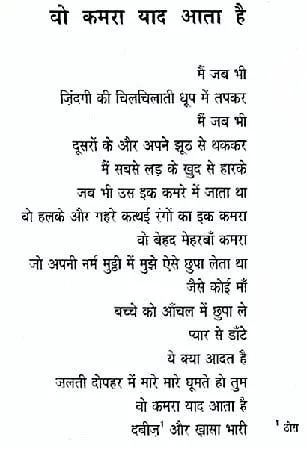 वो कमरा याद आता है
मैं जब भी
ज़िंदगी की चिलचिलाती धूप में तपकर
मैं जब भी
दूसरों के और अपने झूठ से थककर
मैं सबसे लड़ के खुद से हारके
जब भी उस इक कमरे में जाता था
वो हलके और गहरे कत्थई रंगों का इक कमरा
वो बेहद मेहरबाँ कमरा
जो अपनी नर्म मुट्ठी में मुझे ऐसे छुपा लेता था
जैसे कोई माँ
बच्चे को आँचल में छुपा ले
प्यार से डाँटे
ये क्या आदत है
जलती दोपहर में मारे मारे घूमते हो तुम
वो कमरा याद आता है
दबीज़¹ और ख़ासा भारी ¹ ठोस